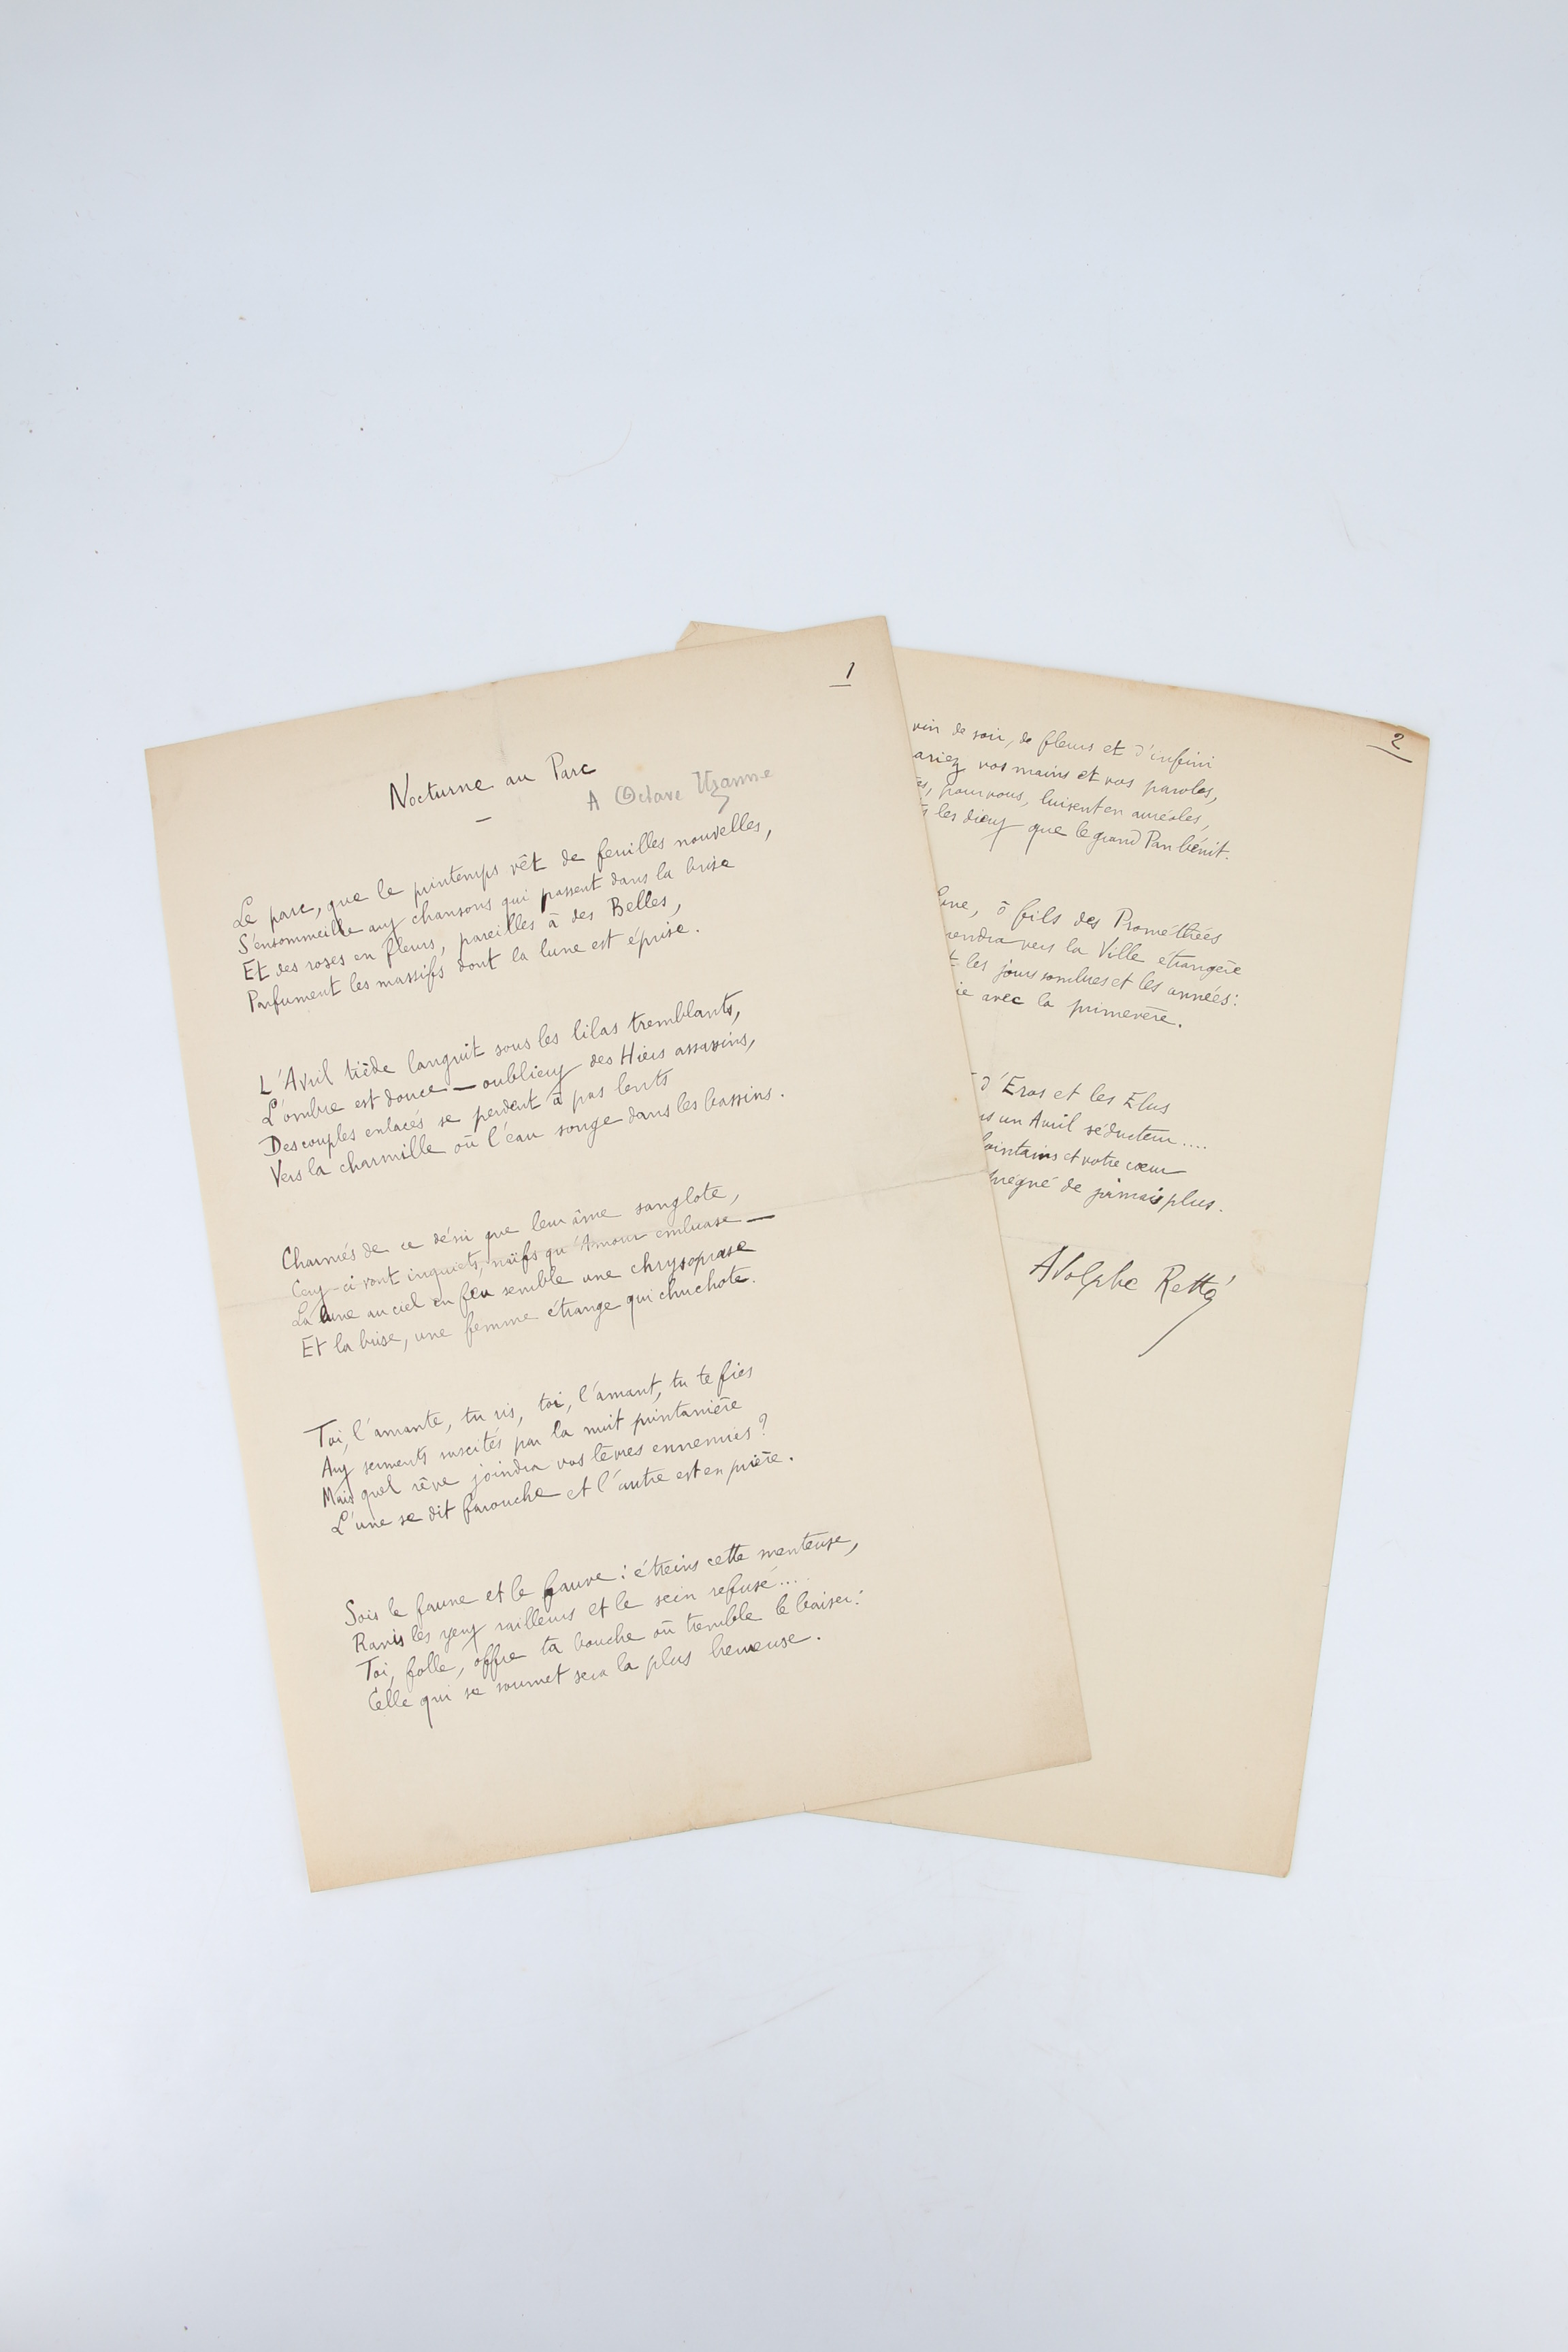 1
Nocturne au Parc
A Octave Uzanne
Le parc, que le printemps vêt de feuilles nouvelles,
S'ensommeille aux chansons qui passent dans la brise
Et des roses en fleurs, pareilles à des Belles,
Parfument les massifs dont la lune est éprise.
L'Avril tiède languit sous les lilas tremblants,
L'ombre est douce — oublieux des Hiers assassins,
Des couples enlacés se perdent à pas lents
Vers la charmille où l'eau songe dans les bassins.
Charmés de ce déni que leur âme sanglote,
Ceux-ci vont inquiets, naïfs qu'Amour embrase —
La lune au ciel en feu semble une chrysoprase
Et la brise, une femme étrange qui chuchote.
Toi, l'amante, tu ris, toi, l'amant, tu te fies
Aux serments suscités par la nuit printanière
Mais quel rêve joindra vos lèvres ennemies ?
L'une se dit farouche et l'autre est en prière.
Sois le faune et le fauve : étreins cette menteuse,
Ravis les yeux railleurs et le sein refusé....
Toi, folle, offre ta bouche où tremble le baiser :
Celle qui se soumet sera la plus heureuse.
2
de soir, de fleurs et d'infini
vos mains et vos paroles,
pour vous, luisent en auréoles,
les dieux que le grand Pan bénit.
ô fils des Prométhées
vers la Ville étrangère
les jours sombres et les années :
avec la primevère.
d'Eros et les Elus
un Avril séducteur....
lointains et votre cœur
de jamais plus.
Adolphe Retté